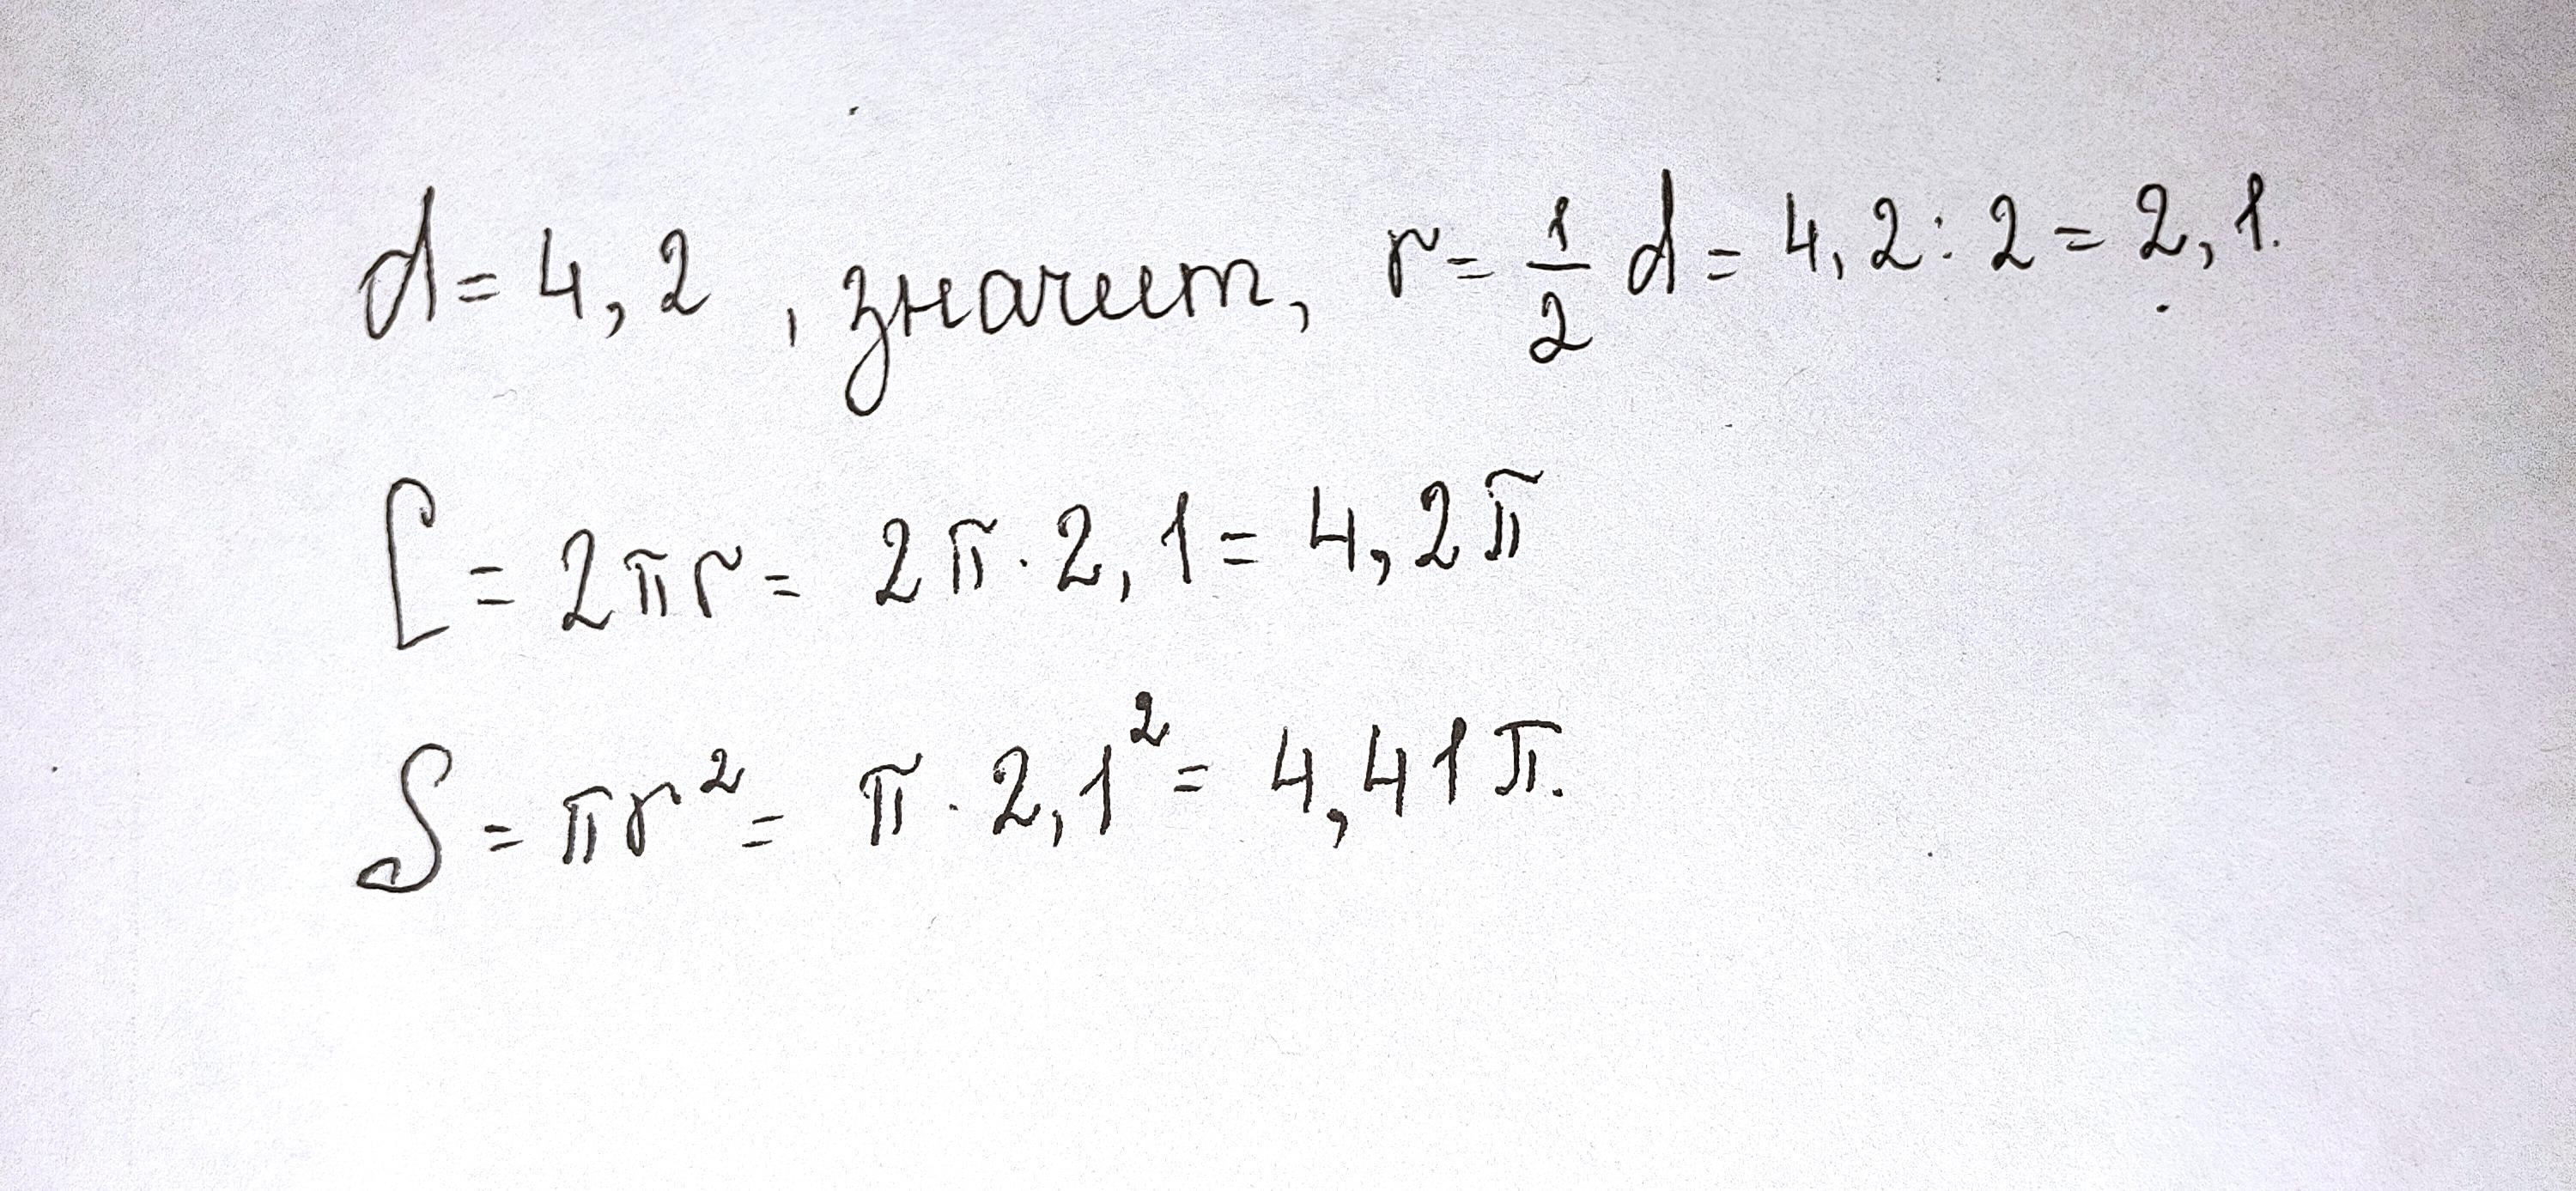 d = 4,2 , значит, r = 1/2 d = 4,2 : 2 = 2,1.
C = 2πr = 2π · 2,1 = 4,2π
S = πr² = π · 2,1² = 4,41π.